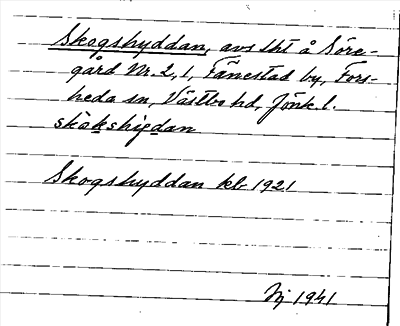 Skogshyddan, avs. lht å Söre-
gård Nr. 2,1, Fänestad by, Fors-
heda sn, Västbo hd, Jönk. l.
skòkshỳdan
Skogshyddan kb 1921
1941